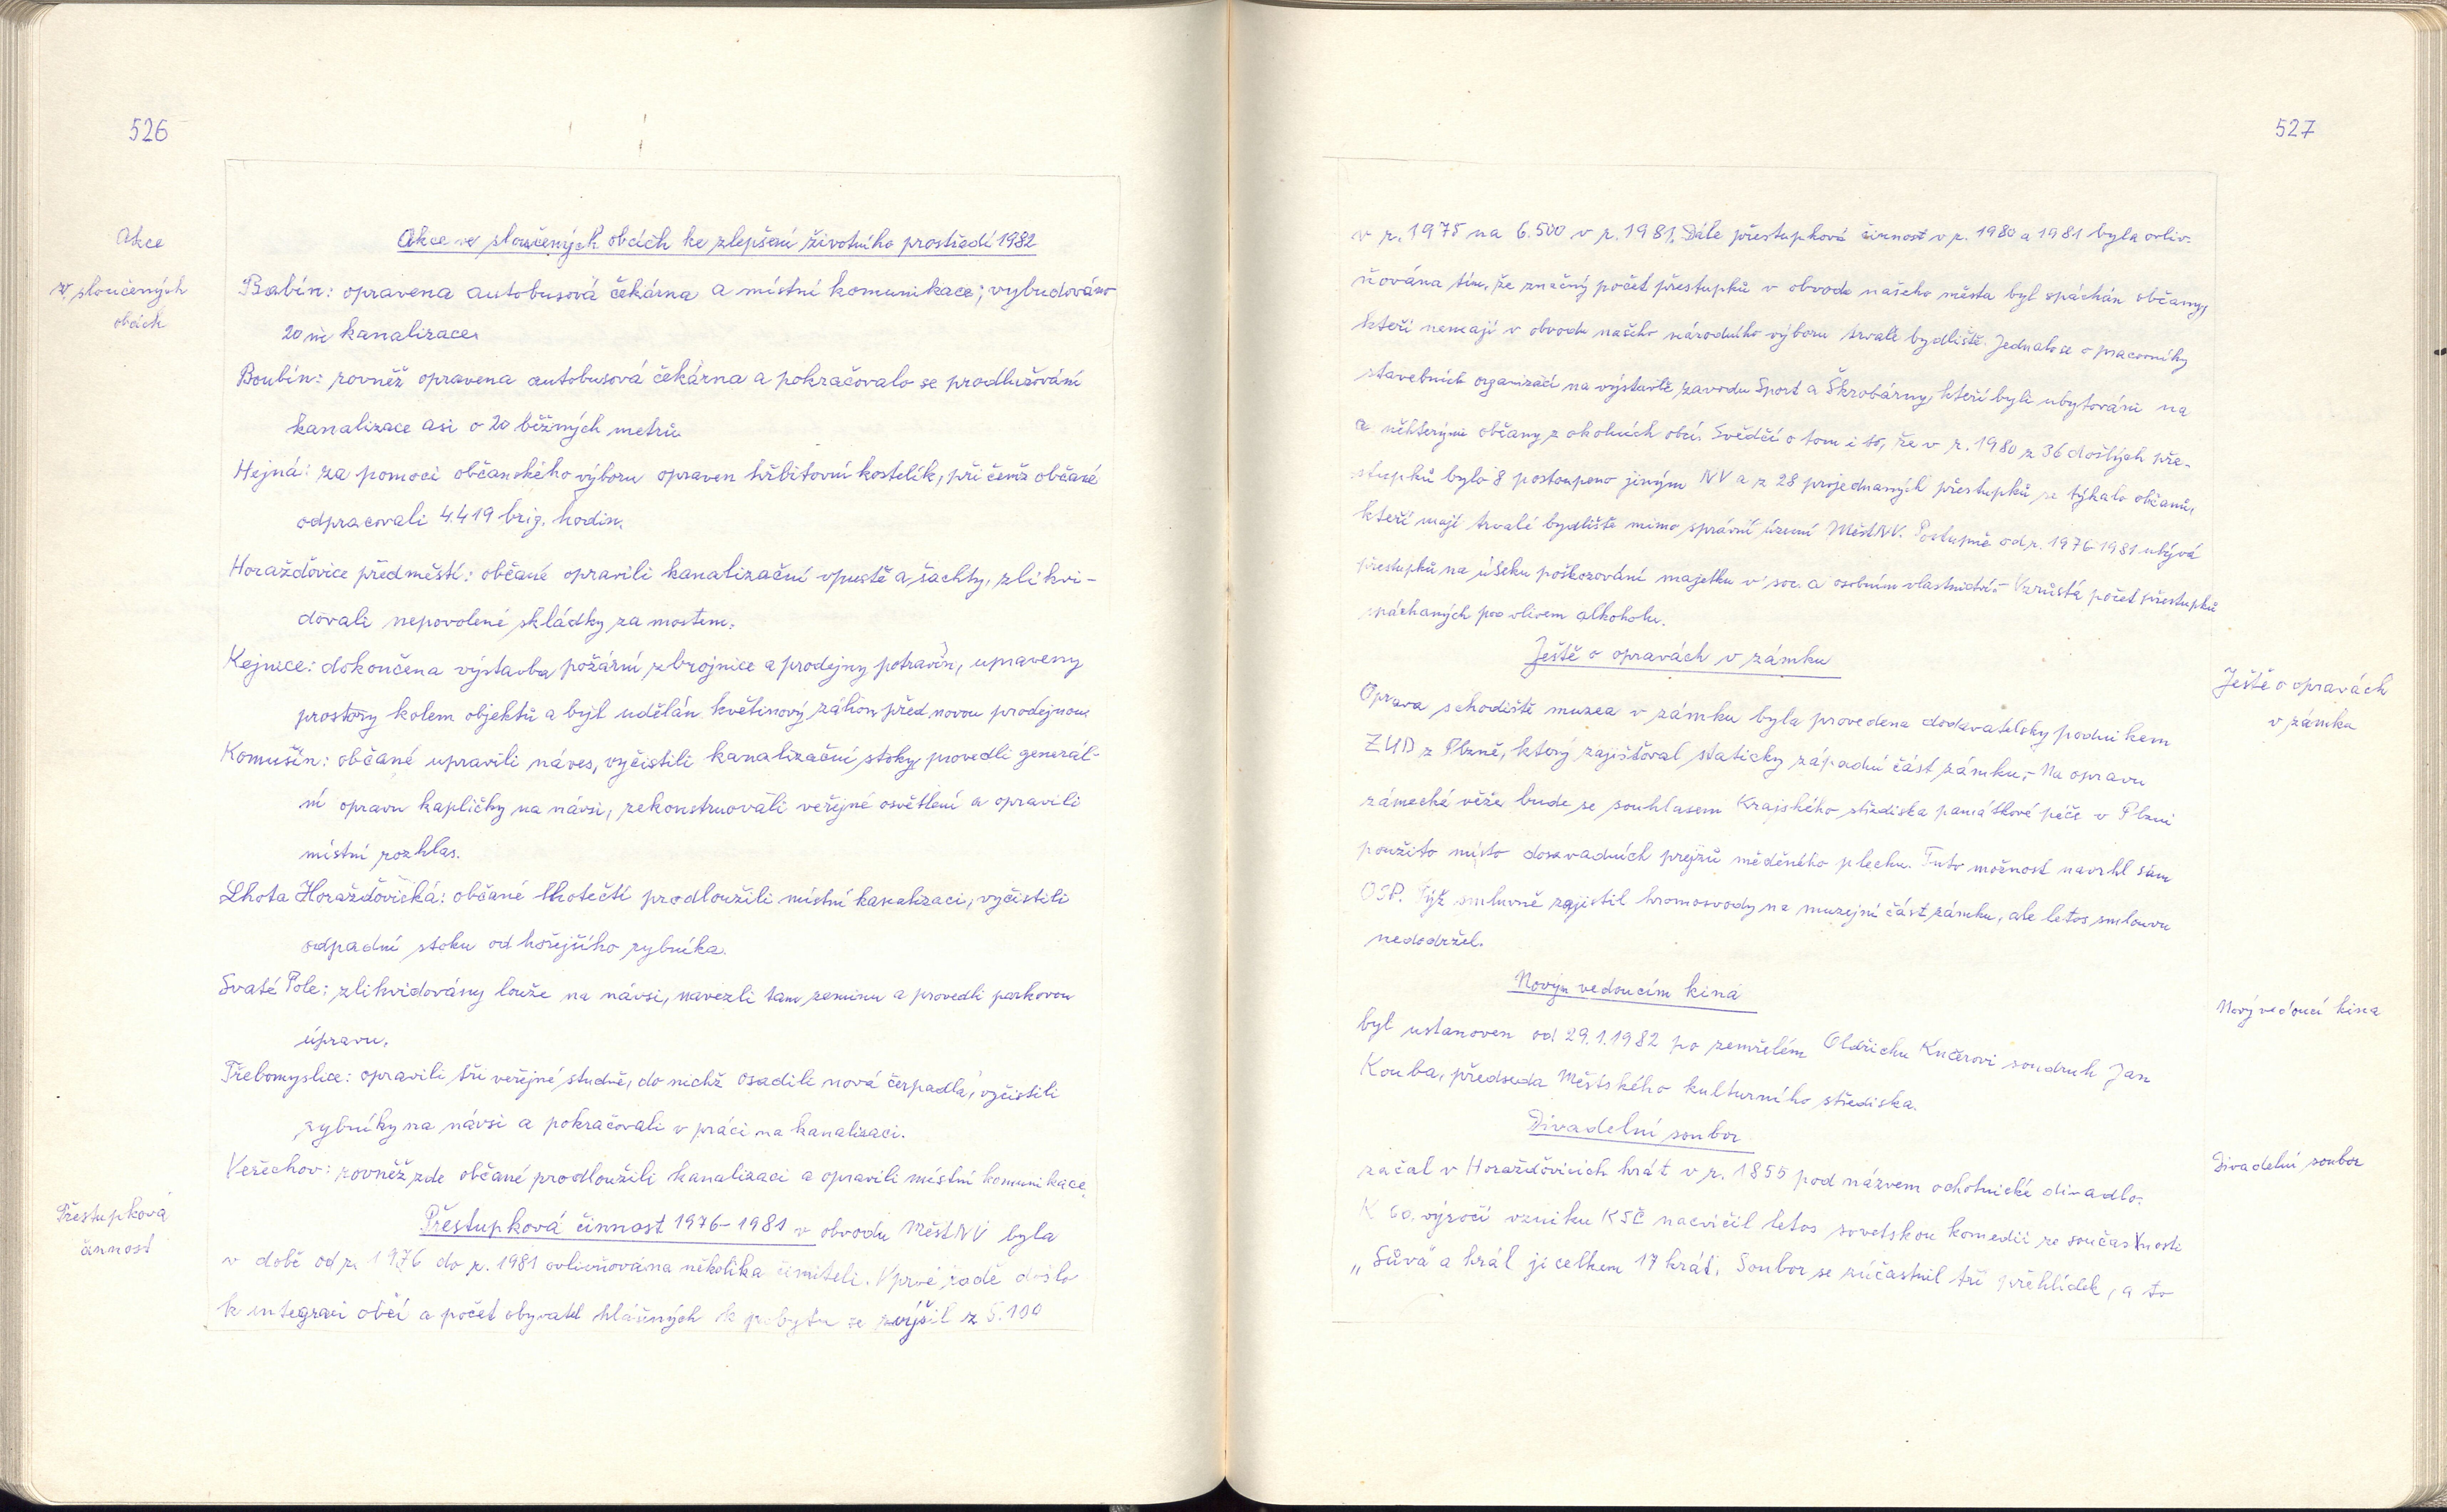 526
Akce
v sloučených
obcích
Akce ve sloučených obcích ke zlepšení životního prostředí 1982
Babín: opravena autobusová čekárna a místní komunikace; vybudováno
20 m kanalizace.
Boubín: rovněž opravena autobusová čekárna a pokračovalo se prodlužování
kanalizace asi o 20 běžných metrů.
Hejná: za pomoci občanského výboru opraven hřbitovní kostelík, při čemž občané
odpracovali 4.419 brig. hodin.
Horažďovice předměstí: občané opravili kanalizační vpustě a šachty, zlikvi-
dovali nepovolené skládky za mostem.
Kejnice: dokončena výstavba požární zbrojnice a prodejny potravin, upraveny
prostory kolem objektů a byl udělán květinový záhon před novou prodejnou.
Komušín: občané upravili náves, vyčistili kanalizační stoky, provedli generál-
ní opravu kapličky na návsi, rekonstruovali veřejné osvětlení a opravili
místní rozhlas.
Lhota Horažďovická: občané lhotečtí prodloužili místní kanalizaci, vyčistili
odpadní stoku od hořejšího rybníka.
Svaté Pole: zlikvidovány louže na návsi, navezli tam zeminu a provedli parkovou
úpravu.
Třebomyslice: opravili tři veřejné studně, do nichž osadili nová čerpadla, vyčistili
rybníky na návsi a pokračovali v práci na kanalizaci.
Veřechov: rovněž zde občané prodloužili kanalizaci a opravili místní komunikace.
Přestupková
činnost
Přestupková činnost 1976-1981 v obvodu MěstNV byla
v době od r. 1976 do r. 1981 ovlivňována několika činiteli. V prvé řadě došlo
k integraci obcí a počet obyvatel hlášených k pobytu se zvýšil z 5.100
527
v r. 1975 na 6.500 v r. 1981. Dále přestupková činnost v r. 1980 a 1981 byla ovliv-
ňována tím, že značný počet přestupků v obvodu našeho města byl spáchán občany,
kteří nemají v obvodu našeho národního výboru trvalé bydliště. Jednalo se o pracovníky
stavebních organizací na výstavbě závodu Sport a Škrobárny, kteří byli ubytováni na
a některými občany z okolních obcí. Svědčí o tom i to, že v r. 1980 z 36 došlých pře-
stupků bylo 8 postoupeno jiným NV a z 28 projednaných přestupků se týkalo občanů,
kteří mají trvalé bydliště mimo správní území MěstNV. Postupně od r. 1976-1981 ubývá
přestupků na úseku poškozování majetku v soc. a osobním vlastnictví.- Vzrůstá počet přestupků
spáchaných pod vlivem alkoholu.
Ještě o opravách v zámku
Ještě o opravách
v zámku
Oprava schodiště muzea v zámku byla provedena dodavatelsky podnikem
ZUD z Plzně, který zajišťoval staticky západní část zámku.- Na opravu
zámecké věže bude se souhlasem Krajského střediska památkové péče v Plzni
použito místo dosavadních prejzů měděného plechu. Tuto možnost navrhl sám
OSP. Týž smluvně zajistil hromosvody na muzejní část zámku, ale letos smlouvu
nedodržel.
Novým vedoucím kina
Nový vedoucí kina
byl ustanoven od 29.1.1982 po zemřelém Oldřichu Kučerovi soudruh Jan
Kouba, předseda Městského kulturního střediska.
Divadelní soubor
Divadelní soubor
začal v Horažďovicích hrát v r. 1855 pod názvem ochotnické divadlo.
K 60. výročí vzniku KSČ nacvičil letos sovětskou komedii ze současnosti
„Sůva" a hrál ji celkem 17 krát. Soubor se zúčastnil tří přehlídek, a to